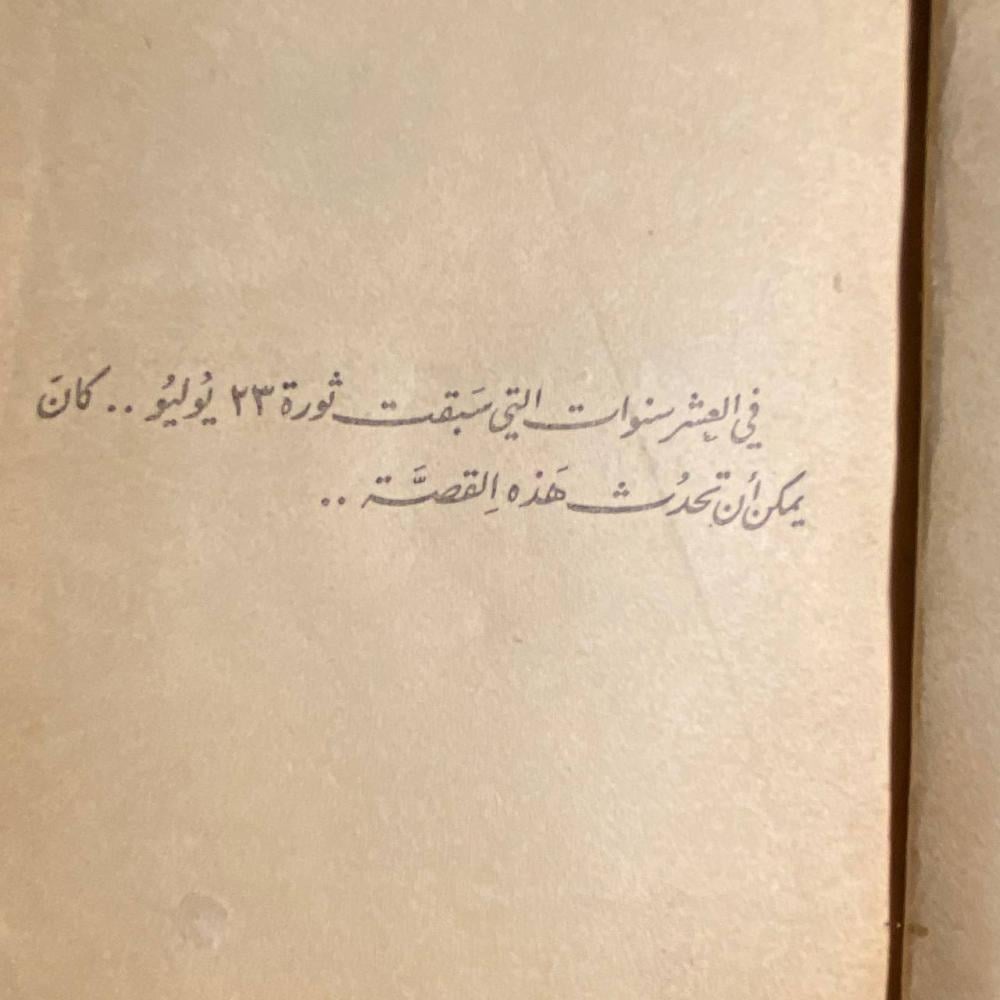 في العشر سنوات التي سَبقت ثورة ٢٣ يُوليُو .. كانَ
يمكن أن تحدُث هَذه القصَّة ..